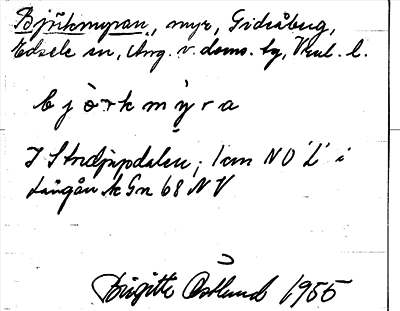 Björkmyran, myr, Gideåberg,
Edsele sn, Ång. v. doms. by, Vnl. l.
b j ö r k m y r a
I Stridjupdalen; 1 cm NO 'L' i
Långån k Gn 68 NV
Birgitte Östlund 1955